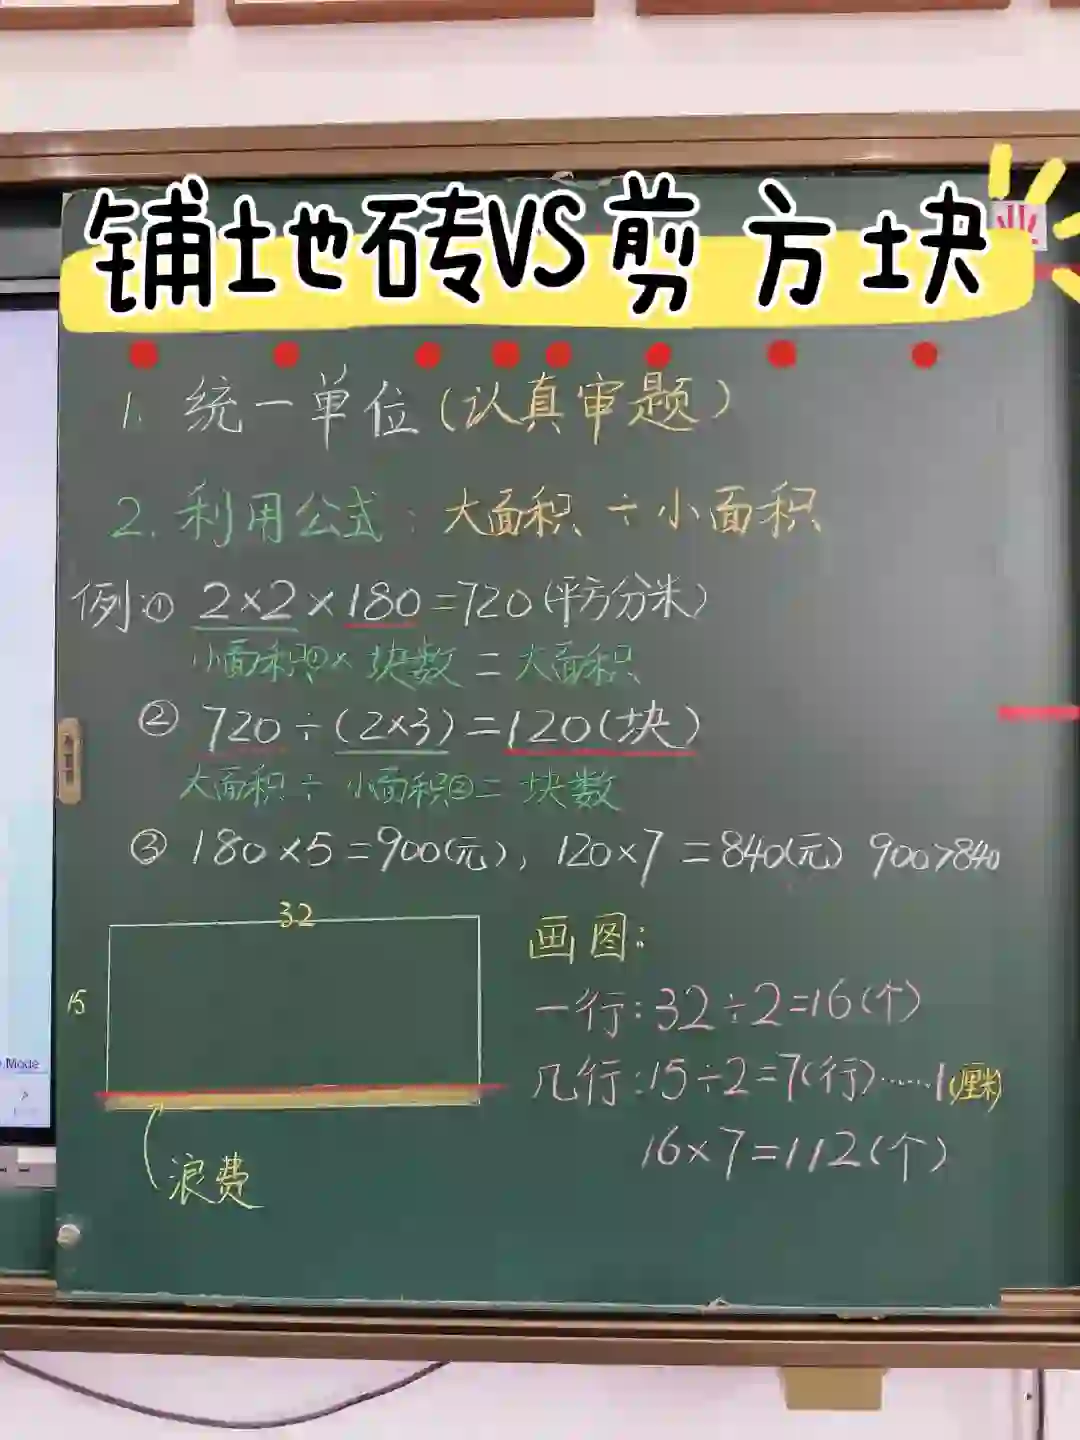 铺地砖VS剪方块
1. 统一单位(认真审题)
2. 利用公式: 大面积 ÷ 小面积
例:① 2×2×180=720(平方分米)
小面积①× 块数 = 大面积
② 720÷(2×3)=120(块)
大面积÷ 小面积②= 块数
③ 180×5=900(元), 120×7=840(元) 900>840
32
15
浪费
画图:
一行:32÷2=16(个)
几行:15÷2=7(行)……1(厘米)
16×7=112(个)
Mode